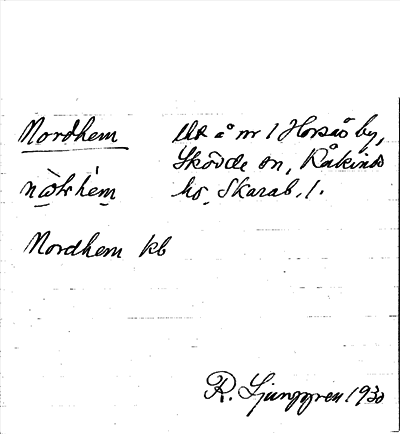 Nordhem
Ut å nr 1 Horsås by,
Skövde sn, Kåkinds
hd, Skarab. l.
Nordhem kb
R. Ljunggren 1930